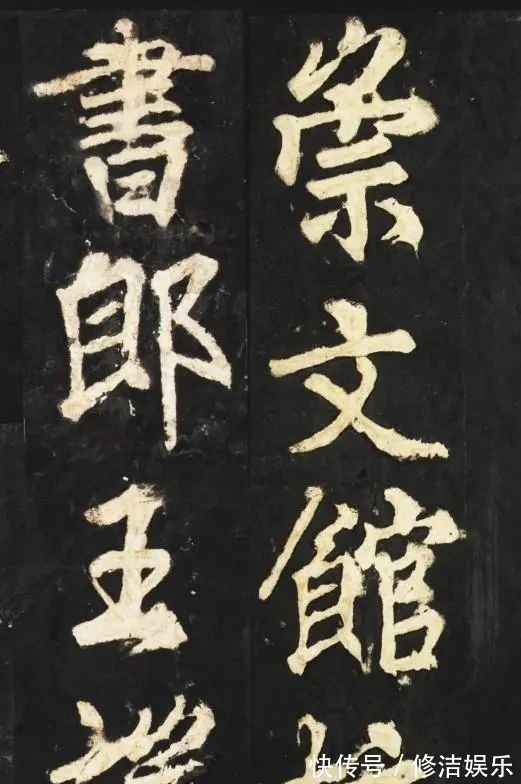 崇文館
書郎王
快传号/修洁娱乐